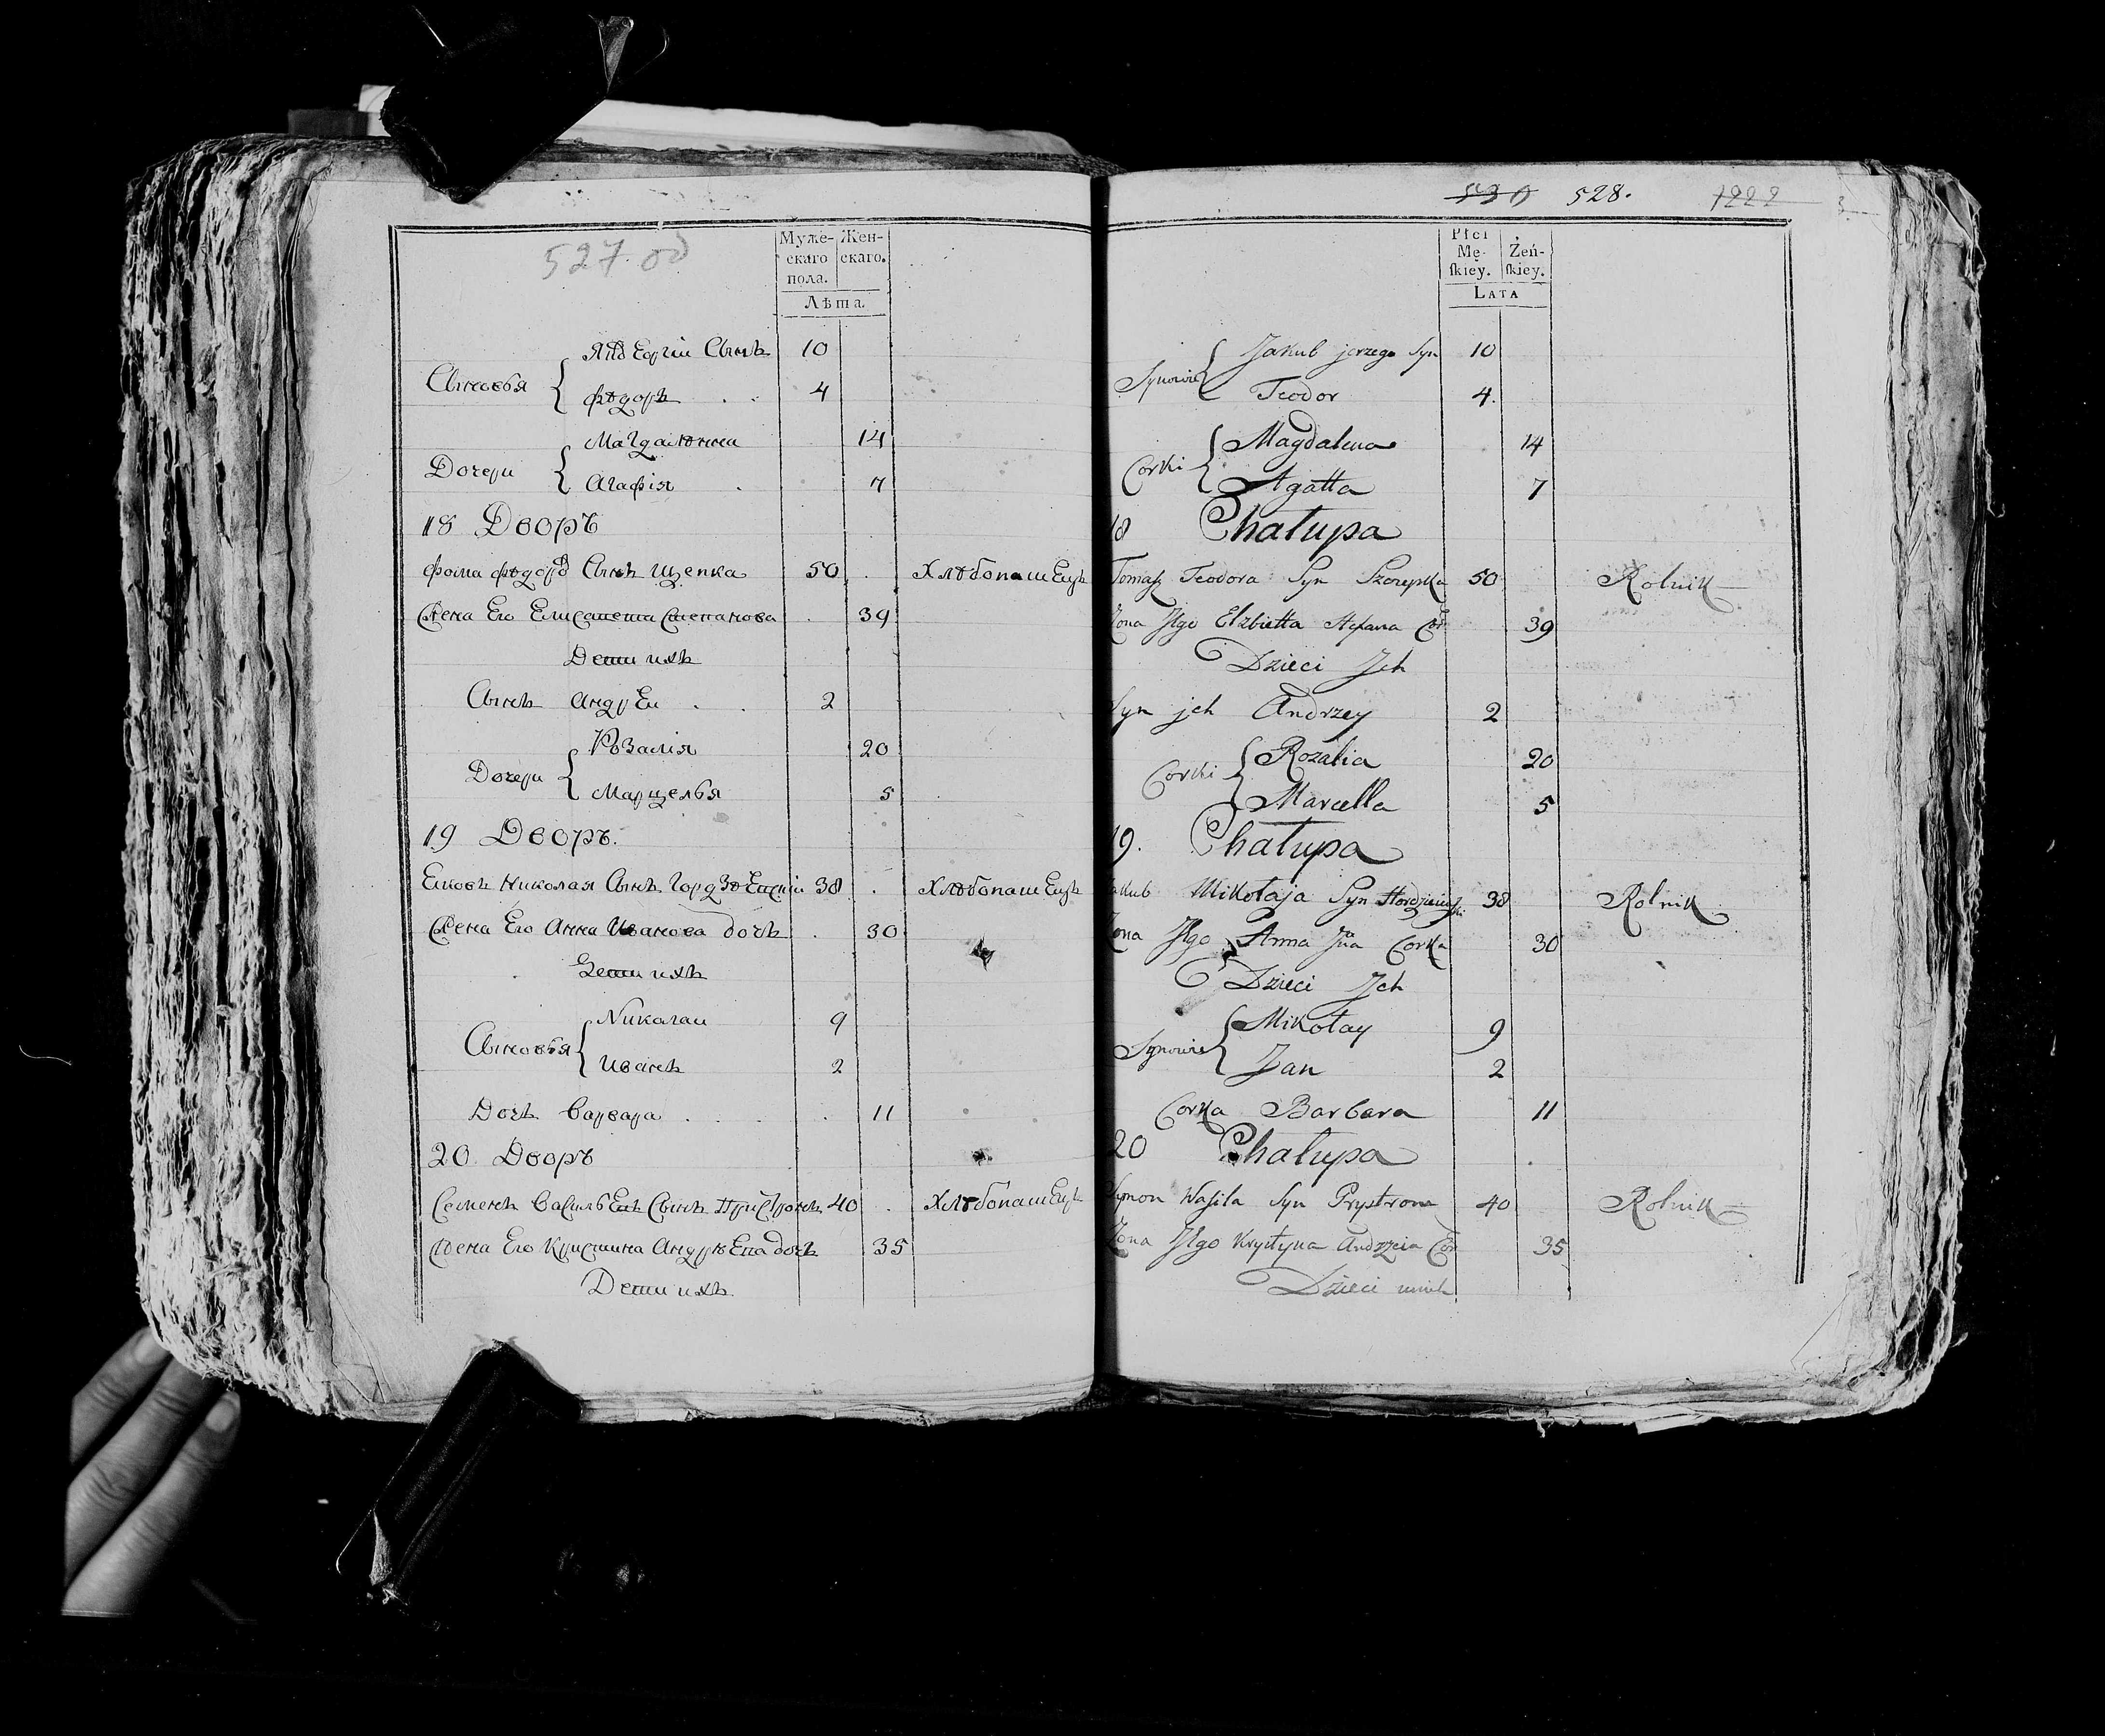 527 об
Муже- Жен-
скаго скаго.
пола.
Лѣта.
Яковъ Еоргiи Сынъ 10
Сыновья {
Ѳѣдоръ . . 4
Магдалѣнна 14
Дочери {
Агафiя . 7
18 Дворъ
Фома Ѳѣдора Сынъ Щепка 50 . Хлѣбопашецъ
Жена Его Елисавета Степанова . 39
Дети ихъ
Сынъ Андрей . . 2
Розалiя 20
Дочери {
Марцелья 5
19 Дворъ.
Николая Сынъ 38 . Хлѣбопашецъ
Жена Его Анна Иванова дочъ . 30
Дети ихъ
Николаи 9
Сыновья {
Иванъ 2
Дочъ Варвара . . . . 11
20. Дворъ
Семенъ Сынъ Пристромъ 40 . Хлѣбопашецъ
Жена Его Кристина дочъ 35
Дети ихъ.
530 528. 1222
Płci
Mę- Żeń-
skiey. skiey.
LATA
Jakub jerzego Syn 10
Synowie {
Teodor 4.
Magdalena 14
Corki {
Agatta 7
18 Chałupa
Tomasz Teodora Syn Szczepka 50 Rolnik
Żona Jego Elzbietta Stefana Cor 39
Dzieci Jch
Syn jch Andrzey 2
Rozalia 20
Corki {
Marcella 5
19. Chałupa
Jakub Mikołaja Syn Hordziewski 38 Rolnik
Żona Jego Anna Jna Corka 30
Dzieci Jch
Mikołay 9
Synowie {
Jan 2
Corka Barbara 11
20 Chałupa
Symon Wasila Syn Prystrom 40 Rolnik
Żona Jego Krystyna Andrzeia Cor 35
Dzieci